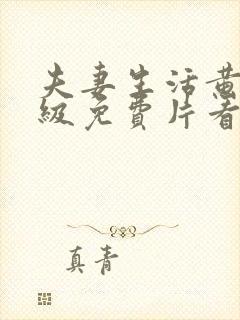 夫妻生活黄
級免費片看
真青